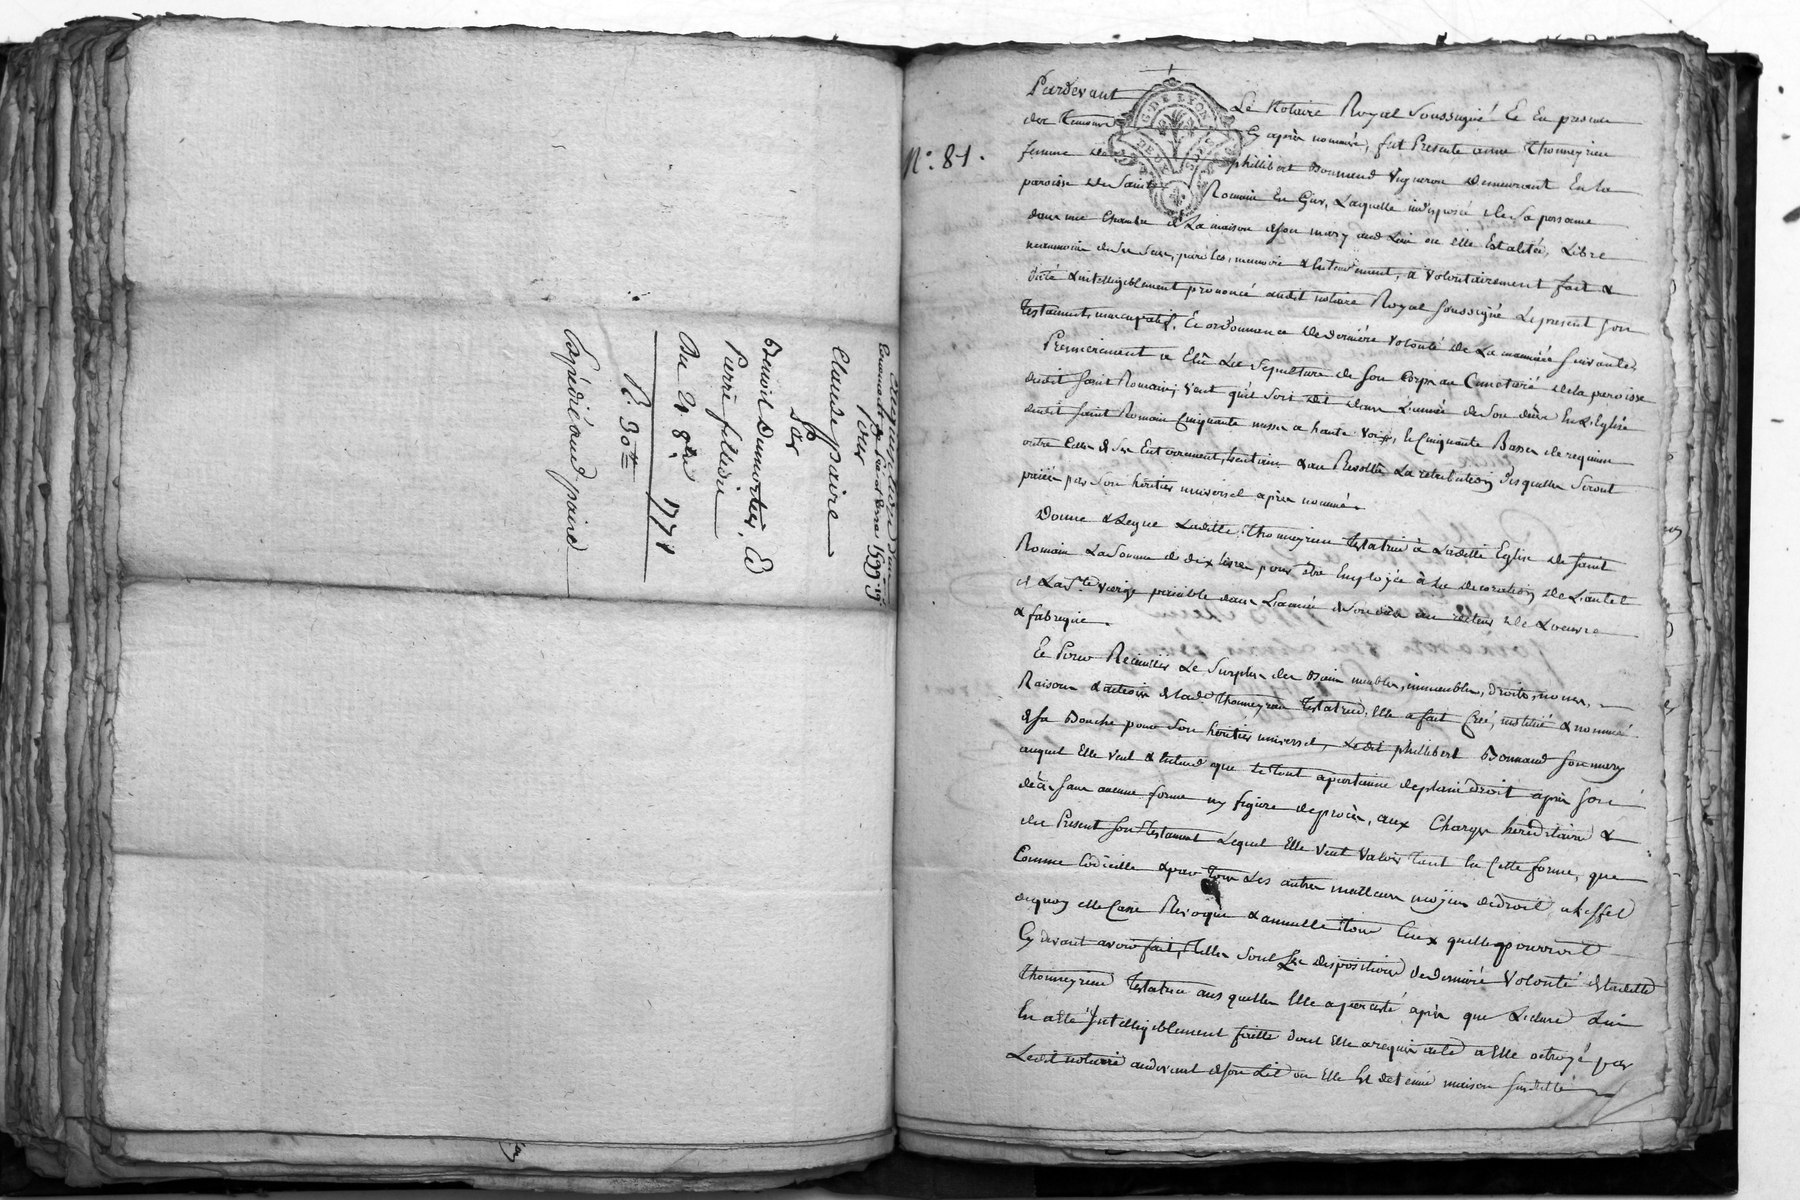 Acquisition dun
tenement de Pré et Terre 1599 #
Pour
Claude paire
Par
Benoit Dumortier, Et
Pierre filliere
Du 21 8bre 1771
R. 30 #
Expédié aud paire
N.° 81.
Pardevant Le Notaire Royal Soussigné Et En presence
des temoins Cy après nommés, fut Presente anne Thomeyrieu
femme de phillibert Bonnand vigneron demeurant En la
paroisse de Saint Romain En Gier, Laquelle indisposée de sa personne
dans une Chambre de La maison de son mary aud Lieu ou elle Est alitée, Libre
neanmoin de ses sens, paroles, memoire & Entendement, a volontairement fait &
dicté & intelligiblement prononcé audit notaire Royal soussigné Le present son
Testament nuncupatif, Et ordonnance de derniere volonté de La maniere suivante,
Premierement a Elû La Sepulture de Son Corps au Cimetiere de la paroisse
dudit Saint Romain, veut qu'il soit dit dans L'année de son décès En L'Eglise
dudit Saint Romain Cinquante messes a haute voix, & Cinquante Basses de requiem
outre Celles de Son Enterrement, trentain & au Revolû La retribution desquelles seront
païées par son héritier universel après nommé.
Donne & Legue Laditte Thomeyrieu Testatrice à Laditte Eglise de Saint
Romain La Somme de dix livres pour être Employée à La decoration de L'autel
de La Ste Vierge païable dans L'année de son décès au recteur de L'oeuvre
& fabrique.
Et Pour Recueillir Le Surplus des Biens meubles, immeubles, droits, noms,
Raisons & actions de lad. Thomeyrieu Testatrice, Elle a fait Creé, institué & nommé
de Sa Bouche pour Son héritier universel, Ledit phillibert Bonnand son mary
auquel Elle veut & Entend que Le tout apartienne de plein droit après son
décès sans aucune forme ny figure de procès, aux Charges héréditaires &
du Present son Testament Lequel Elle veut valoir tant En Cette forme, que
Comme Codicille & par tous Les autres meilleurs moyens de droit, a L'effet
dequoy elle Casse Revoque & annulle tous Ceux qu'elle pourroit
Cy devant avoir fait, Telles sont Les dispositions de derniere volonté de laditte
Thomeyrieu Testatrice aus quelles Elle a persisté après que Lecture Lui
En a été Intelligiblement faitte dont Elle a requis acte a Elle octroyé par
Ledit notaire audevant de son Lit ou Elle Est detenue maison susditte